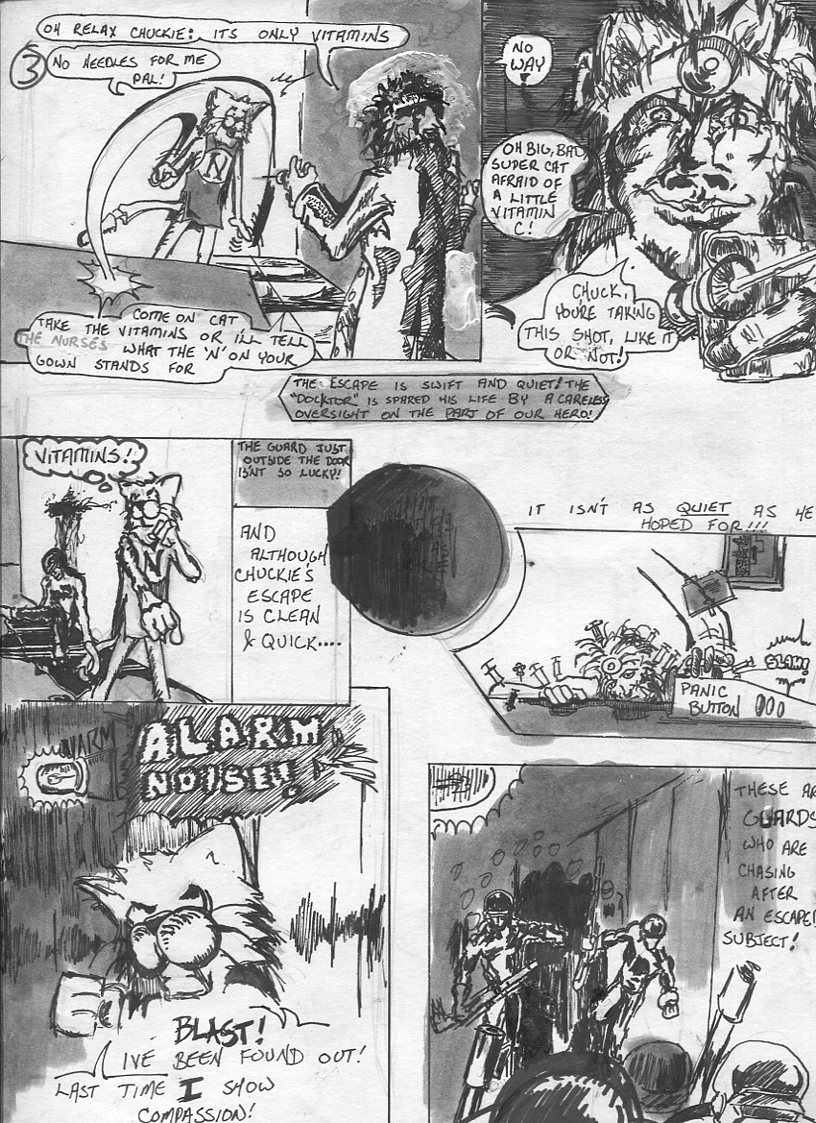 OH RELAX CHUCKIE: ITS ONLY VITAMINS
3
NO NEEDLES FOR ME
PAL!
N
COME ON CAT
TAKE THE VITAMINS OR I'LL TELL
THE NURSES WHAT THE 'N' ON YOUR
GOWN STANDS FOR
NO
WAY
OH BIG, BAD
SUPER CAT
AFRAID OF
A LITTLE
VITAMIN
C!
CHUCK,
YOU'RE TAKING
THIS SHOT, LIKE IT
OR NOT!
THE ESCAPE IS SWIFT AND QUIET! THE
"DOCKTOR" IS SPARED HIS LIFE BY A CARELESS
OVERSIGHT ON THE PART OF OUR HERO!
VITAMINS!
N
THE GUARD JUST
OUTSIDE THE DOOR
ISN'T SO LUCKY!
AND
ALTHOUGH
CHUCKIE'S
ESCAPE
IS CLEAN
& QUICK....
IT ISN'T AS QUIET AS HE
HOPED FOR!!!
SLAM!
PANIC
BUTTON
ALARM
ALARM
NOISE!!
BLAST!
IVE BEEN FOUND OUT!
LAST TIME I SHOW
COMPASSION!
THESE AR
GUARDS
WHO ARE
CHASING
AFTER
AN ESCAPE
SUBJECT!